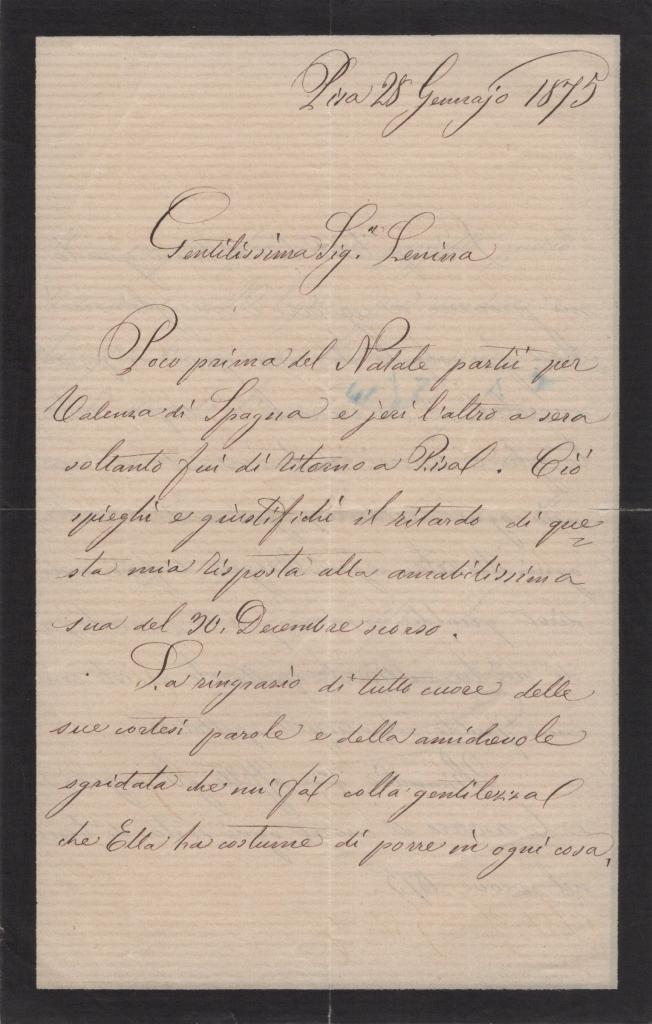 Pisa 28 Gennajo 1875
Gentilissima Sig.ª Lenina
Poco prima del Natale partii per
Valenza di Spagna e jeri l'altro a sera
soltanto fui di ritorno a Pisa. Ciò
spieghi e giustifichi il ritardo di que
sta mia risposta alla amabilissima
sua del 30. Decembre scorso.
La ringrazio di tutto cuore delle
sue cortesi parole e della amichevole
sgridata che mi fà colla gentilezza
che Ella ha costume di porre in ogni cosa,